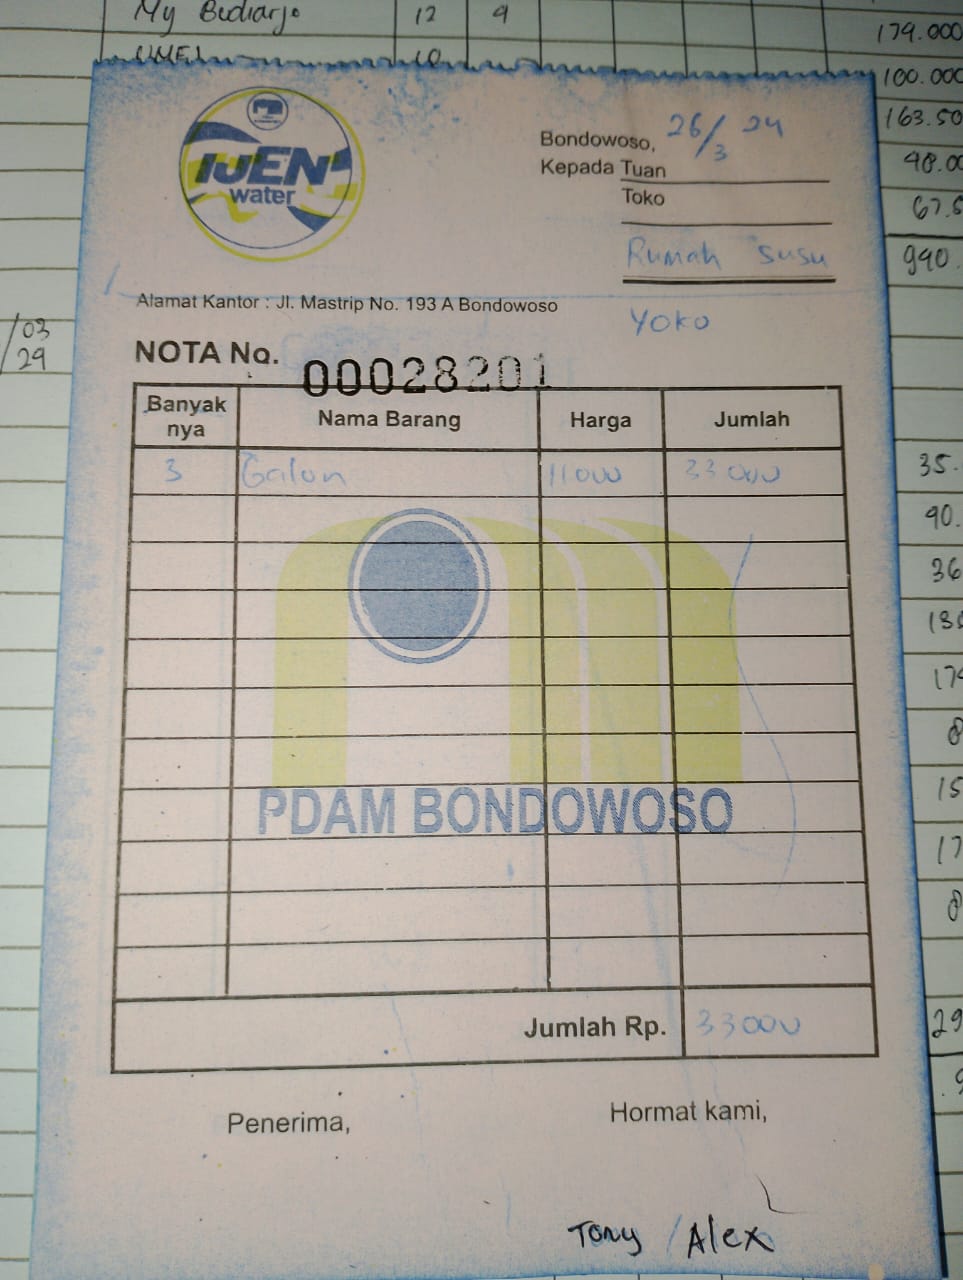 My Budiarjo 12 9 179.000
UMEI 10 100.000
163.50
48.00
67.5
990.
IJEN
water
Bondowoso, 26/3 24
Kepada Tuan
Toko
Rumah Susu
Yoko
Alamat Kantor : Jl. Mastrip No. 193 A Bondowoso
/03
/29
NOTA No. 00028201
Banyak nya Nama Barang Harga Jumlah
3 Galon 11000 33000
35.
90.
36
15
17
PDAM BONDOWOSO
Jumlah Rp. 33000
29
Penerima, Hormat kami,
Tony / Alex